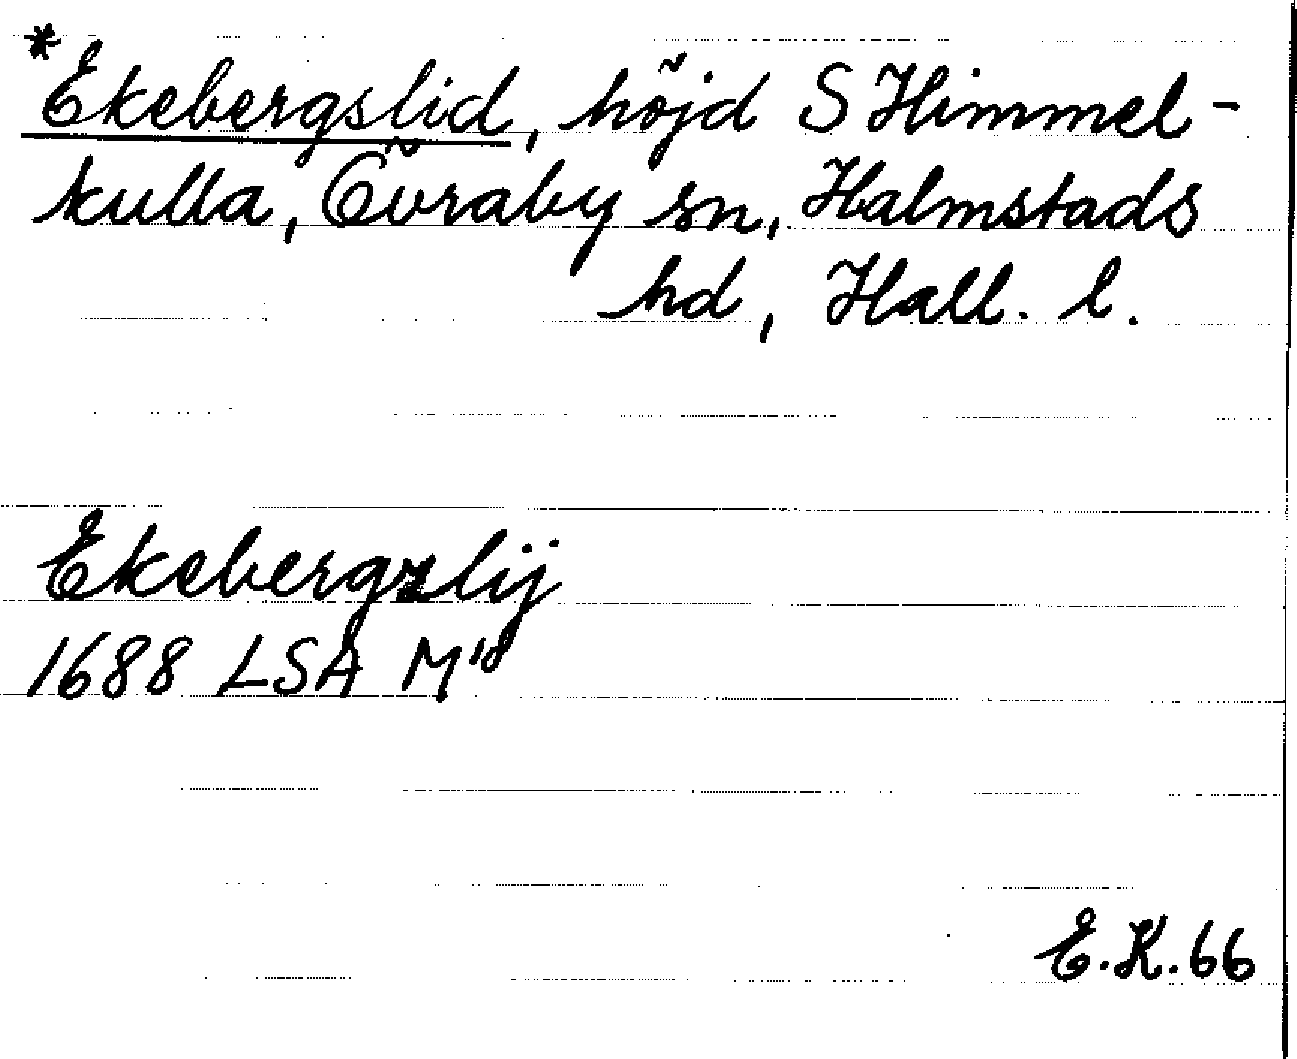 *Ekebergslid, höjd S Himmel-
kulla, Övraby sn, Halmstads
hd, Hall. l.
Ekebergzlÿ
1688 LSA M18
E.K.66